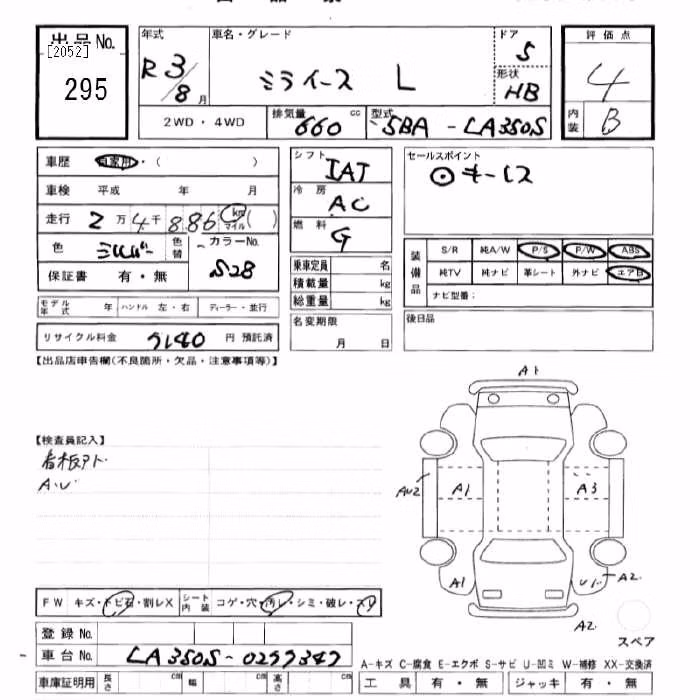 出品No. [2052] 295
年式 R 3/8 月 車名・グレード ミライース L ドア 5 形状 HB
評価点 4 内装 B
2WD・4WD 排気量 660 cc 型式 5BA-LA350S
車歴 自家用・( )
車検 平成 年 月
走行 2万4千886 km マイル ( )
色 シルバー 色替 カラーNo. S28
保証書 有・無
モデル年式 年 ハンドル 左・右 ディーラー・並行
リサイクル料金 円 預託済
シフト IAT
冷房 AC
燃料 G
乗車定員 名
積載量 kg
総重量 kg
名変期限 月 日
セールスポイント
⊙キーレス
装備品 S/R 純A/W P/S P/W ABS
純TV 純ナビ 革シート 外ナビ エアB
ナビ型番:
後日品
【出品店申告欄(不良箇所・欠品・注意事項等)】
【検査員記入】
看板アト
A・U
A1
AU2 A1 A3
A1 U1 A2
A2
スペア
FW キズ・トビ石・割レX シート内装 コゲ・穴・汚レ・シミ・破レ・スレ
登録No.
車台No. LA350S-0297347
車庫証明用 長さ cm 幅 cm 高さ cm
A-キズ C-腐食 E-エクボ S-サビ U-凹ミ W-補修 XX-交換済
工具 有・無 ジャッキ 有・無